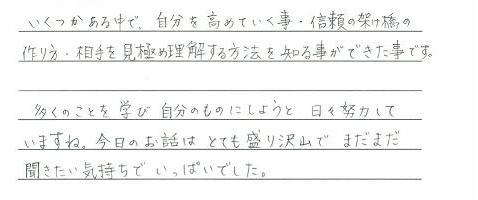 いくつかある中で、自分を高めていく事・信頼の架け橋の
作り方・相手を見極め理解する方法を知る事ができた事です。
多くのことを学び自分のものにしようと日々努力して
いますね。今日のお話はとても盛り沢山でまだまだ
聞きたい気持ちでいっぱいでした。